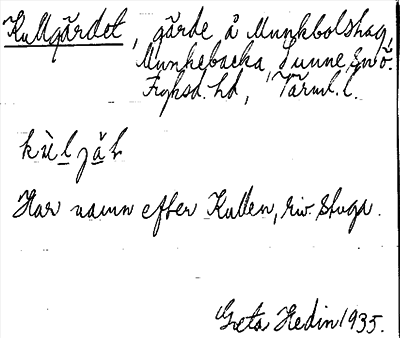 Kullgärdet, gärde å Munkbolshag,
Munkebacka, Sunne sn ö.
Fryksd. hd, Värml. l.
Har namn efter Kullen, riv. stuga.
Greta Hedin 1935.